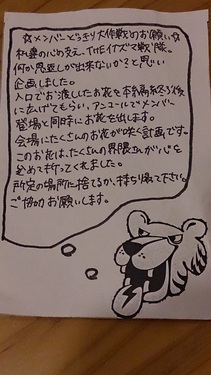 ☆メンバーどっきり大作戦のお願い☆
私達の心の支え、THEイナズマ戦隊。
何か恩返しが出来ないか?と思い
企画しました。
入口でお渡ししたお花を本編終了後
に広げてもらい、アンコールでメンバー
登場と同時にお花を出します。
会場にたくさんのお花が咲く計画です。
このお花は、たくさんの界隈さんが心を
込めて折ってくれました。
所定の場所に捨てるか、持ち帰って下さい。
ご協力お願いします。